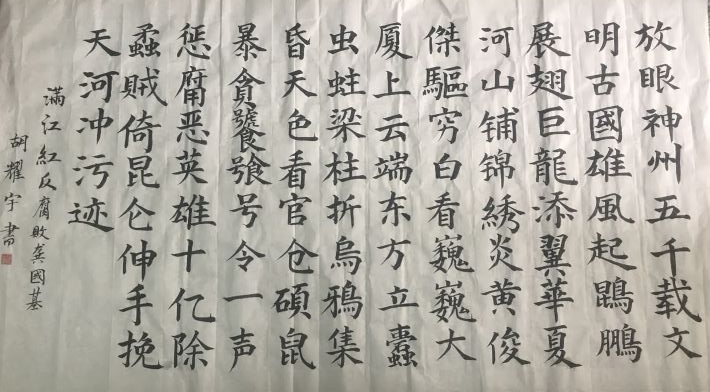 放眼神州五千载文
明古國雄風起鵾鵬
展翅巨龍添翼華夏
河山铺锦綉炎黄俊
傑驅穷白看巍巍大
厦上云端东方立蠹
虫蛀梁柱折烏鴉集
昏天色看官仓碩鼠
暴貪饕餮号令一声
惩腐恶英雄十亿除
蟊贼倚昆仑伸手挽
天河冲污迹
满江紅反腐敗龚國基
胡耀宇書